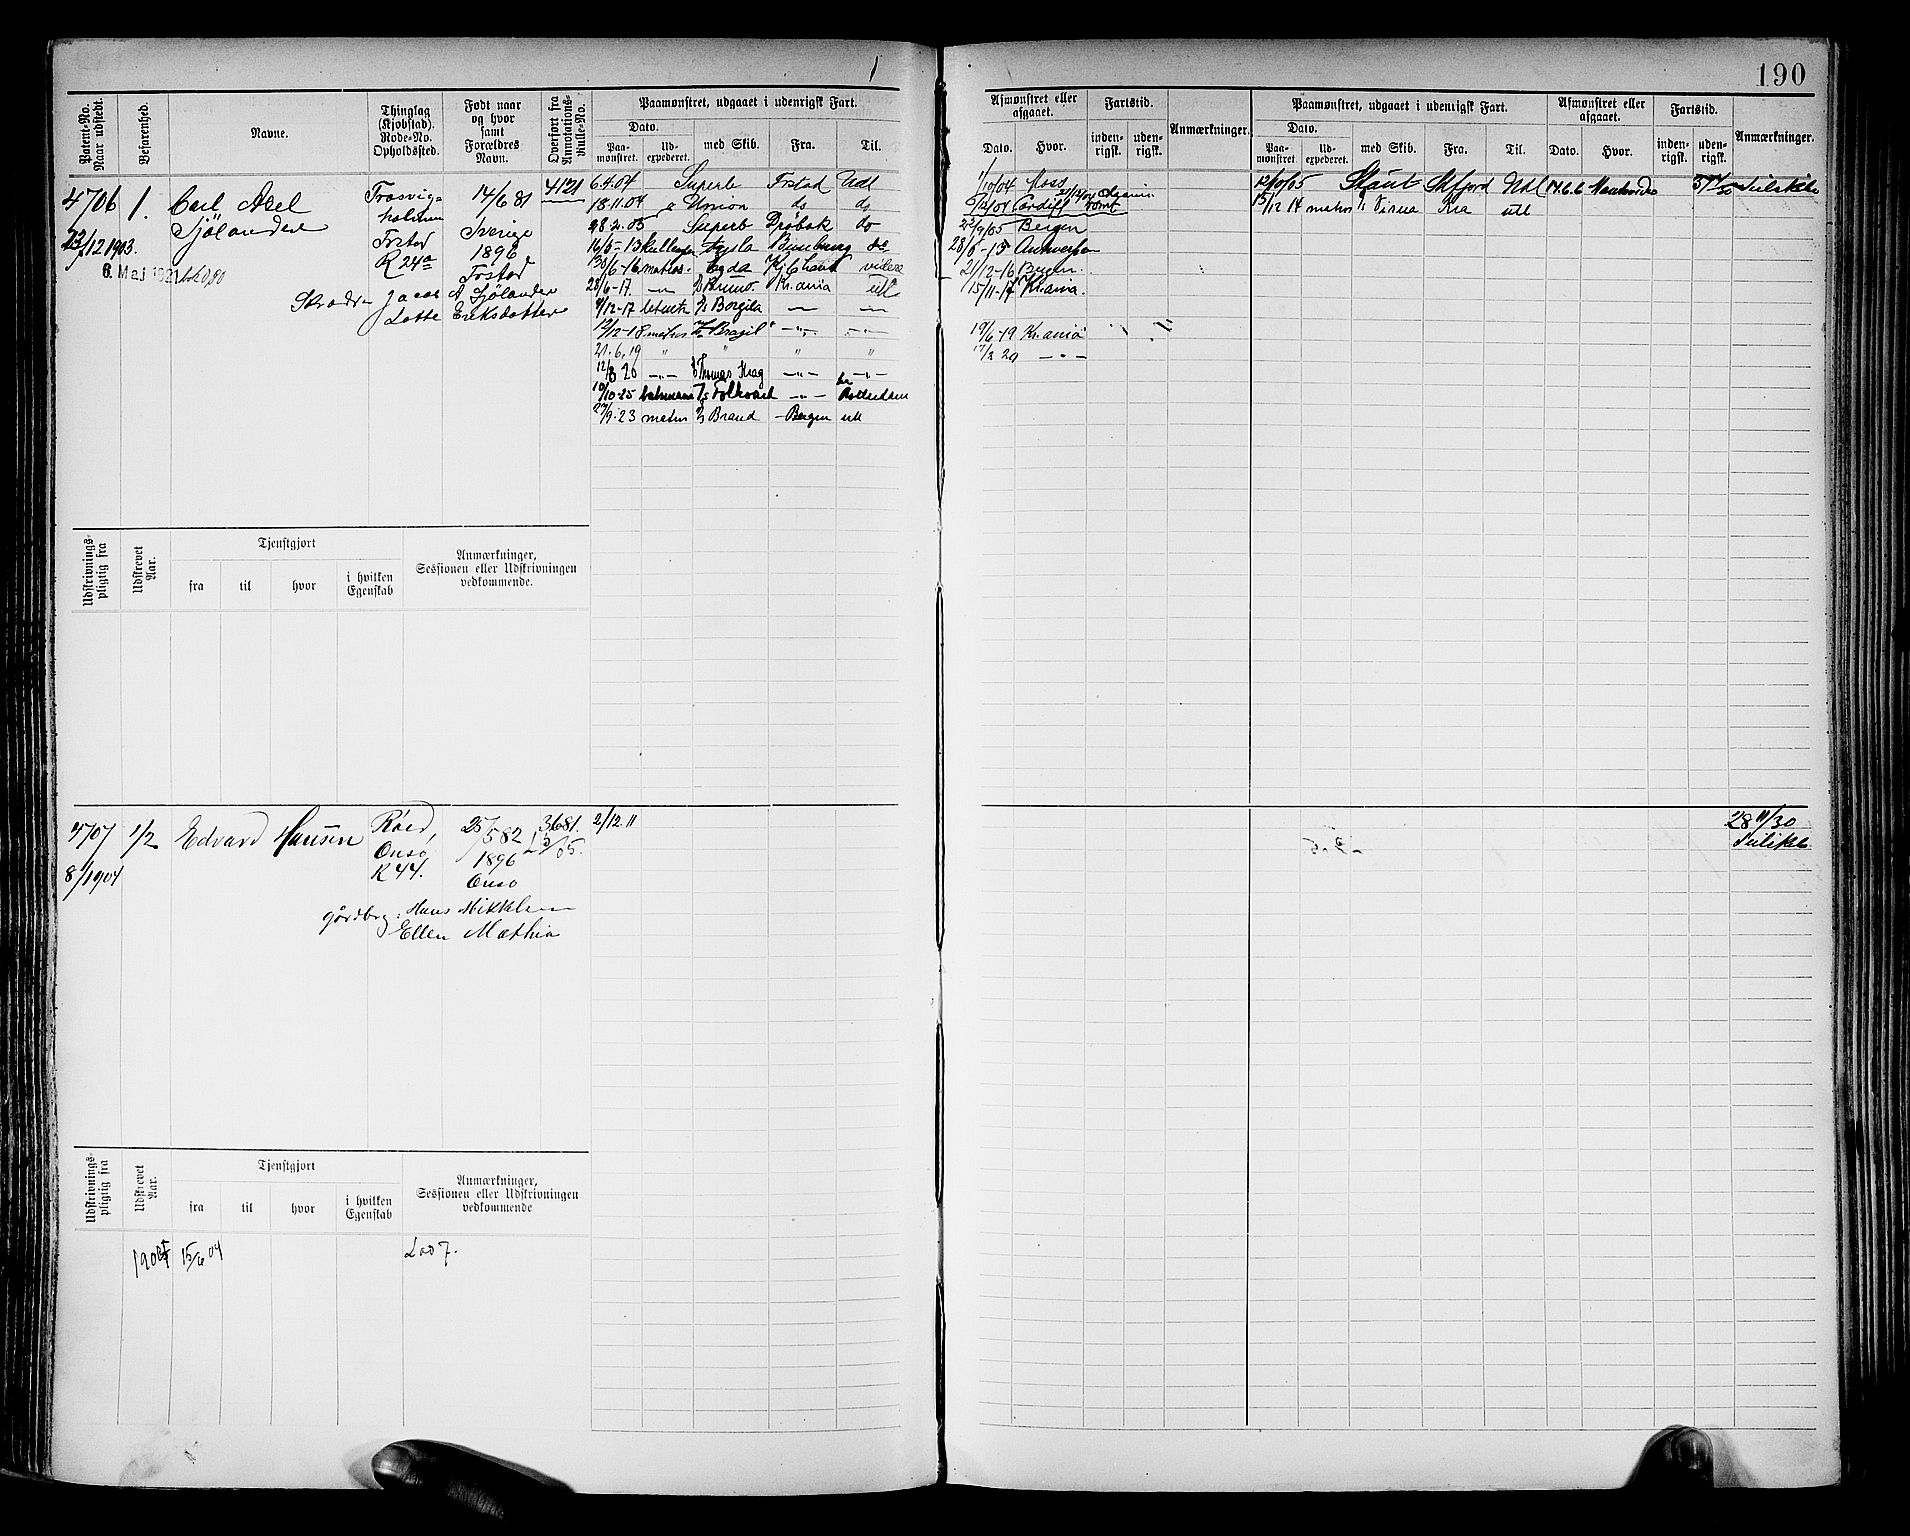 190
Patent-No.
Naar udstedt.
Befarenhed.
Navne.
Thinglag
(Kjøbstad).
Rode-No.
Opholdssted.
Født naar
og hvor
samt
Forældres
Navn.
Overført fra
Annotations-
Rulle-No.
Paamønstret, udgaaet i udenrigsk Fart.
Dato.
Paa-
mønstret.
Ud-
expederet.
med Skib.
Fra.
Til.
Afmønstret eller
afgaaet.
Dato.
Hvor.
Fartstid.
inden-
rigsk.
uden-
rigsk.
Anmærkninger.
Paamønstret, udgaaet i udenrigsk Fart.
Dato.
Paa-
mønstret.
Ud-
expederet.
med Skib.
Fra.
Til.
Afmønstret eller
afgaaet.
Dato.
Hvor.
Fartstid.
inden-
rigsk.
uden-
rigsk.
Anmærkninger.
4706
23/12 1903.
6. Maj 1921
1.
Carl Axel
Sjölander
Trosvig-
holdtun
Frstad
R 24a
14/6 81
Sverige
1896
Frstad
Jacob A Sjölander
Lotte Eriksdotter
4121
6.4.04 Superb Frstad Udl
18.11.04 Union do do
28.2.05 Superb Drøbak do
16/6-13
30/6-16 matros. Kjbhavn videre
28/6-17. Bruno Kr.ania utl
9/12-17 Borgila
12/12-18 matros Brazil
21.6.19 " " " "
12/8 20 Thomas Krag
10/10-25 Folkvard Rotterdam
27/9.23 matros Brand Bergen utl
1/10/04 Moss
5/12/04 Cardiff rømt
23/9/05 Bergen
28/6-15 Antwerpen
21/12-16 Bergen
15/11-17 Kr.ania.
19/6-19 Kr.ania
17/2 20
12/10/05 Skfjord Udl 14.6.6
15/12 14 matros Kra utl
Udskrivnings-
pligtig fra
Udskrevet
Aar.
Tjenstgjort
fra
til
hvor
i hvilken
Egenskab
Anmærkninger,
Sessionen eller Udskrivningen
vedkommende.
4707
8/1904
1/2
Edvard Hansen
Røed,
Onsø
R 44.
25/5 82
1896
Onsø
gårdbrg: Hans Mikkelsen
Ellen Mathia
3681.
2/12.11
28 11/30
Udskrivnings-
pligtig fra
Udskrevet
Aar.
Tjenstgjort
fra
til
hvor
i hvilken
Egenskab
Anmærkninger,
Sessionen eller Udskrivningen
vedkommende
1904 15/6 04
Lod 7.